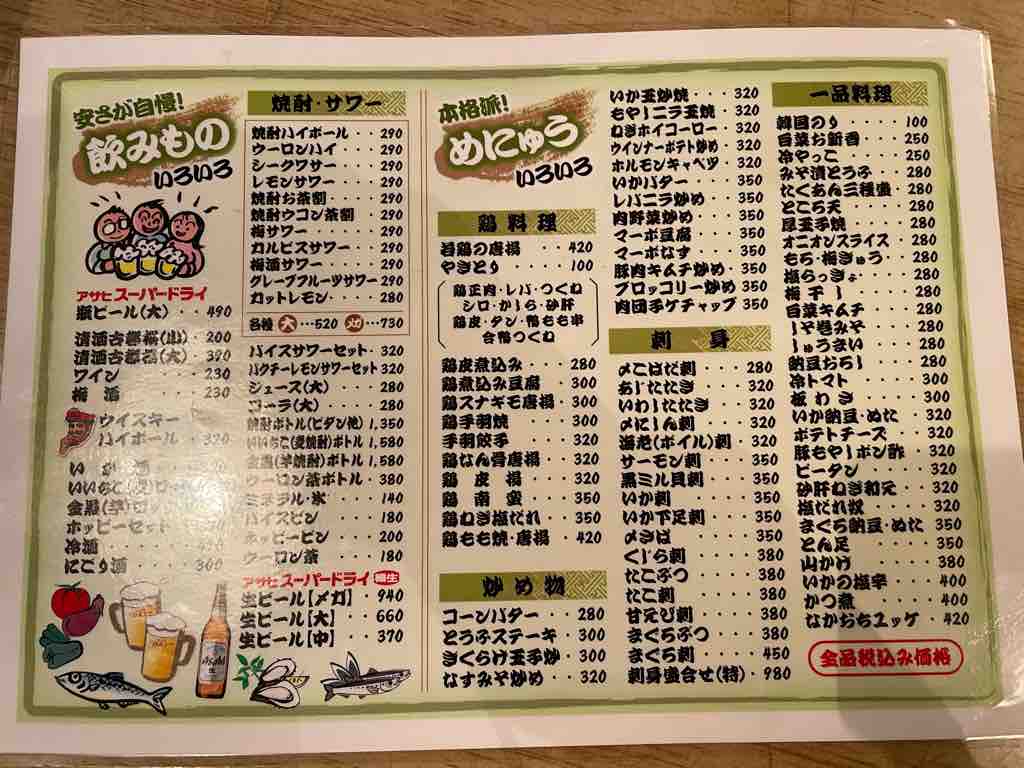 安さが自慢!
飲みもの
いろいろ
アサヒスーパードライ
瓶ビール(大)・・490
清酒古都桜(小)・200
清酒古都桜(大)・390
ワイン・・・・230
梅酒・・・・230
ウイスキー
ハイボール・320
いか酒
いいちこ
ホッピーセット
冷酒
にごり酒・・・300
焼酎・サワー
焼酎ハイボール・・290
ウーロンハイ・・・290
シークワサー・・・290
レモンサワー・・・290
焼酎お茶割・・・290
焼酎ウコン茶割・・290
梅サワー・・・・290
カルピスサワー・・290
梅酒サワー・・・290
グレープフルーツサワー・290
カットレモン・・・280
各種 大・・・520 メガ・・・730
バイスサワーセット・320
パクチーレモンサワーセット 320
ジュース(大)・・・280
コーラ(大)・・・280
焼酎ボトル(ビダン他)1,350
いいちこ(麦焼酎)ボトル 1,580
金黒(芋焼酎)ボトル 1,580
ウーロン茶ボトル・380
ミネラル・氷・・・140
バイスビン・・・180
ホッピービン・・・200
ウーロン茶・・・180
アサヒスーパードライ 樽生
生ビール【メガ】 940
生ビール【大】・・660
生ビール【中】・・370
本格派!
めにゅう
いろいろ
鶏料理
若鶏の唐揚・・・420
やきとり・・・・100
鶏正肉・レバ・つくね
シロ・かしら・砂肝
鶏皮・タン・鴨もも串
合鴨つくね
鶏皮煮込み・・・280
鶏煮込み豆腐・・300
鶏スナギモ唐揚・300
鶏手羽焼・・・・300
手羽餃子・・・・320
鶏なん骨唐揚・・320
鶏皮揚・・・320
鶏南蛮・・・350
鶏ねぎ塩だれ・・350
鶏もも焼・唐揚・420
炒め物
コーンバター・・280
とうふステーキ・300
きくらげ玉子炒・300
なすみそ炒め・・320
いか玉炒焼・・・320
もやしニラ玉焼・320
ねぎホイコーロー・320
ウインナーポテト炒め・320
ホルモンキャベツ・320
いかバター・・・350
レバニラ炒め・・350
肉野菜炒め・・・350
マーボ豆腐・・・350
マーボなす・・・350
豚肉キムチ炒め・350
ブロッコリー炒め 350
肉団子ケチャップ 350
刺身
〆こはだ刺・・・280
あじたたき・・・320
いわしたたき・・320
〆にしん刺・・・320
海老(ボイル)刺・320
サーモン刺・・・350
黒ミル貝刺・・・350
いか刺・・・・・350
いか下足刺・・・350
〆さば・・・・・350
くじら刺・・・・380
たこぶつ・・・・380
たこ刺・・・・・380
甘えび刺・・・・380
まぐろぶつ・・・380
まぐろ刺・・・・450
刺身盛合せ(特)・980
一品料理
韓国のり・・・・100
白菜お新香・・・250
冷やっこ・・・・250
みそ漬とうふ・・280
たくあん三種盛・280
ところ天・・・・280
厚玉子焼・・・・280
オニオンスライス・280
もろ・梅きゅう・・280
塩らっきょ・・・280
梅干し・・・・280
白菜キムチ・・・280
しそ巻みそ・・・280
しゅうまい・・・280
納豆おろし・・・280
冷トマト・・・・300
板わさ・・・・300
いか納豆・ぬた・320
ポテトチーズ・・320
豚もやしポン酢・320
ピータン・・・・320
砂肝ねぎ和え・・320
塩だれ奴・・・・320
まぐろ納豆・ぬた 350
とん足・・・・・350
山かけ・・・・・380
いかの塩辛・・・400
かつ煮・・・・・400
なかおちユッケ・420
全品税込み価格